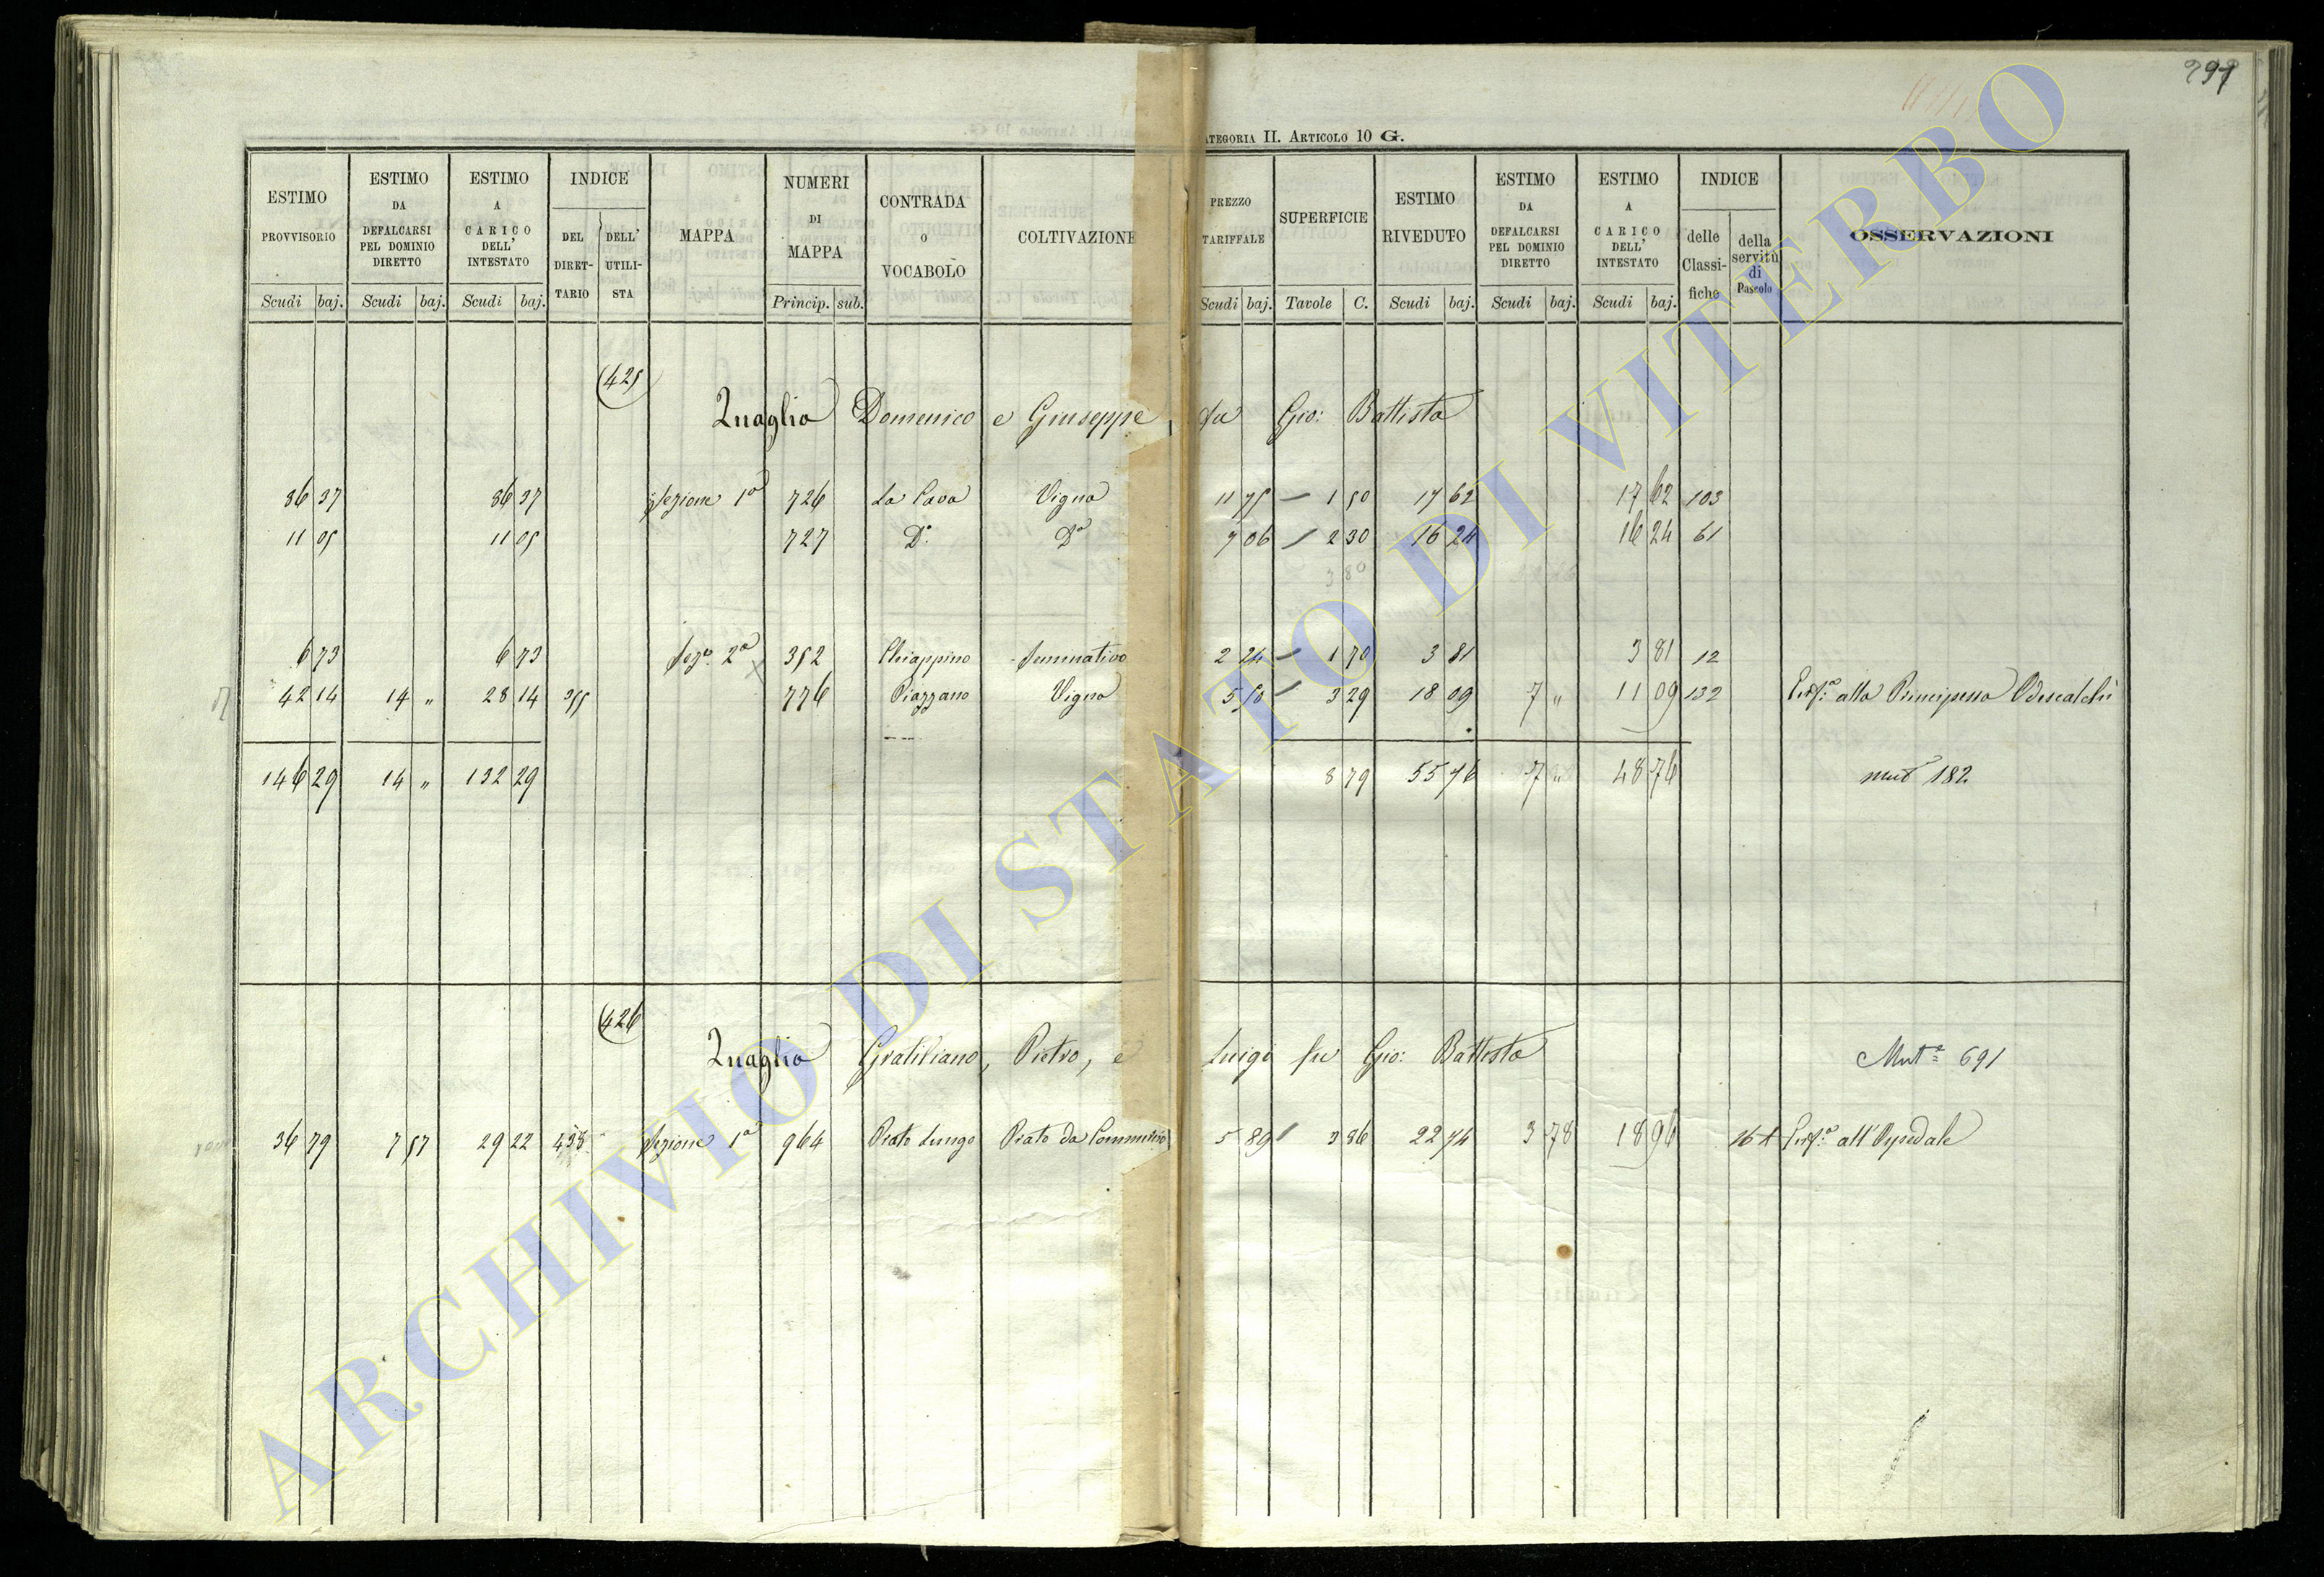 291
CATEGORIA II. ARTICOLO 10 G.
ESTIMO PROVVISORIO Scudi baj.
ESTIMO DA DEFALCARSI PEL DOMINIO DIRETTO Scudi baj.
ESTIMO A CARICO DELL' INTESTATO Scudi baj.
INDICE DEL DIRET-TARIO DELL' UTILI-STA
MAPPA
NUMERI DI MAPPA Princip. sub.
CONTRADA O VOCABOLO
COLTIVAZIONE
PREZZO TARIFFALE Scudi baj.
SUPERFICIE Tavole C.
ESTIMO RIVEDUTO Scudi baj.
ESTIMO DA DEFALCARSI PEL DOMINIO DIRETTO Scudi baj.
ESTIMO A CARICO DELL' INTESTATO Scudi baj.
INDICE delle Classi-fiche della servitù di Pascolo
OSSERVAZIONI
(425)
Quaglia Domenico e Giuseppe, fu Gio: Battista
86 37 86 37 Sezione 1a 726 La Cava Vigna 11 75 — 1 50 17 62 17 62 103
11 05 11 05 727 Do. Da 7 06 — 2 30 16 24 16 24 61
3 80
6 73 6 73 Seze. 2a 352 Chiappino Seminativo 2 24 — 1 70 3 81 3 81 12
42 14 14 " 28 14 776 Piazzano Vigna 5 50 — 3 29 18 09 7 " 11 09 132 alla Principessa Odescalchi
146 29 14 " 132 29 8 79 55 76 7 " 48 76 mut 182
(426)
Quaglia Gratiliano, Pietro, e Luigi fu Gio: Battista Muta 691
36 79 7 57 29 22 438 Sezione 1a 964 Prato Lungo Prato da 5 89 3 86 22 74 3 78 18 96 all'Ospedale
ARCHIVIO DI STATO DI VITERBO